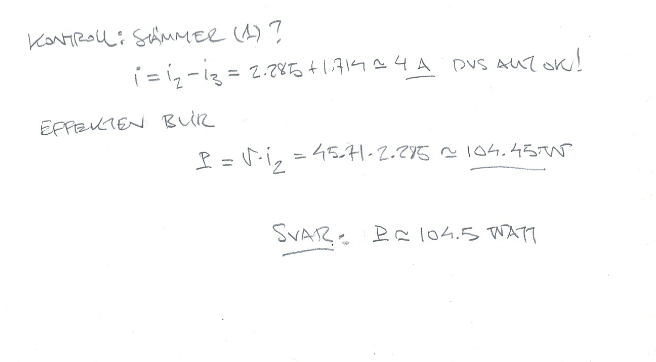 KONTROLL: STÄMMER (1)?
i = i₂ - i₃ = 2.285 + 1.714 ≃ 4 A DVS ALLT OK!
EFFEKTEN BLIR
P = V·i₂ = 45.71 · 2.285 ≃ 104.45 W
SVAR: P ≃ 104.5 WATT